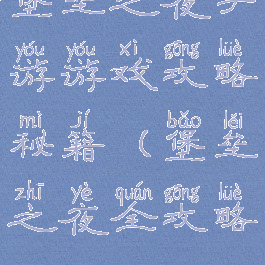 堡垒之夜手
yóu yóu xì gōng lüè
游游戏攻略
mì jí bǎo lěi
秘籍(堡垒
zhī yè quán gōng lüè
之夜全攻略